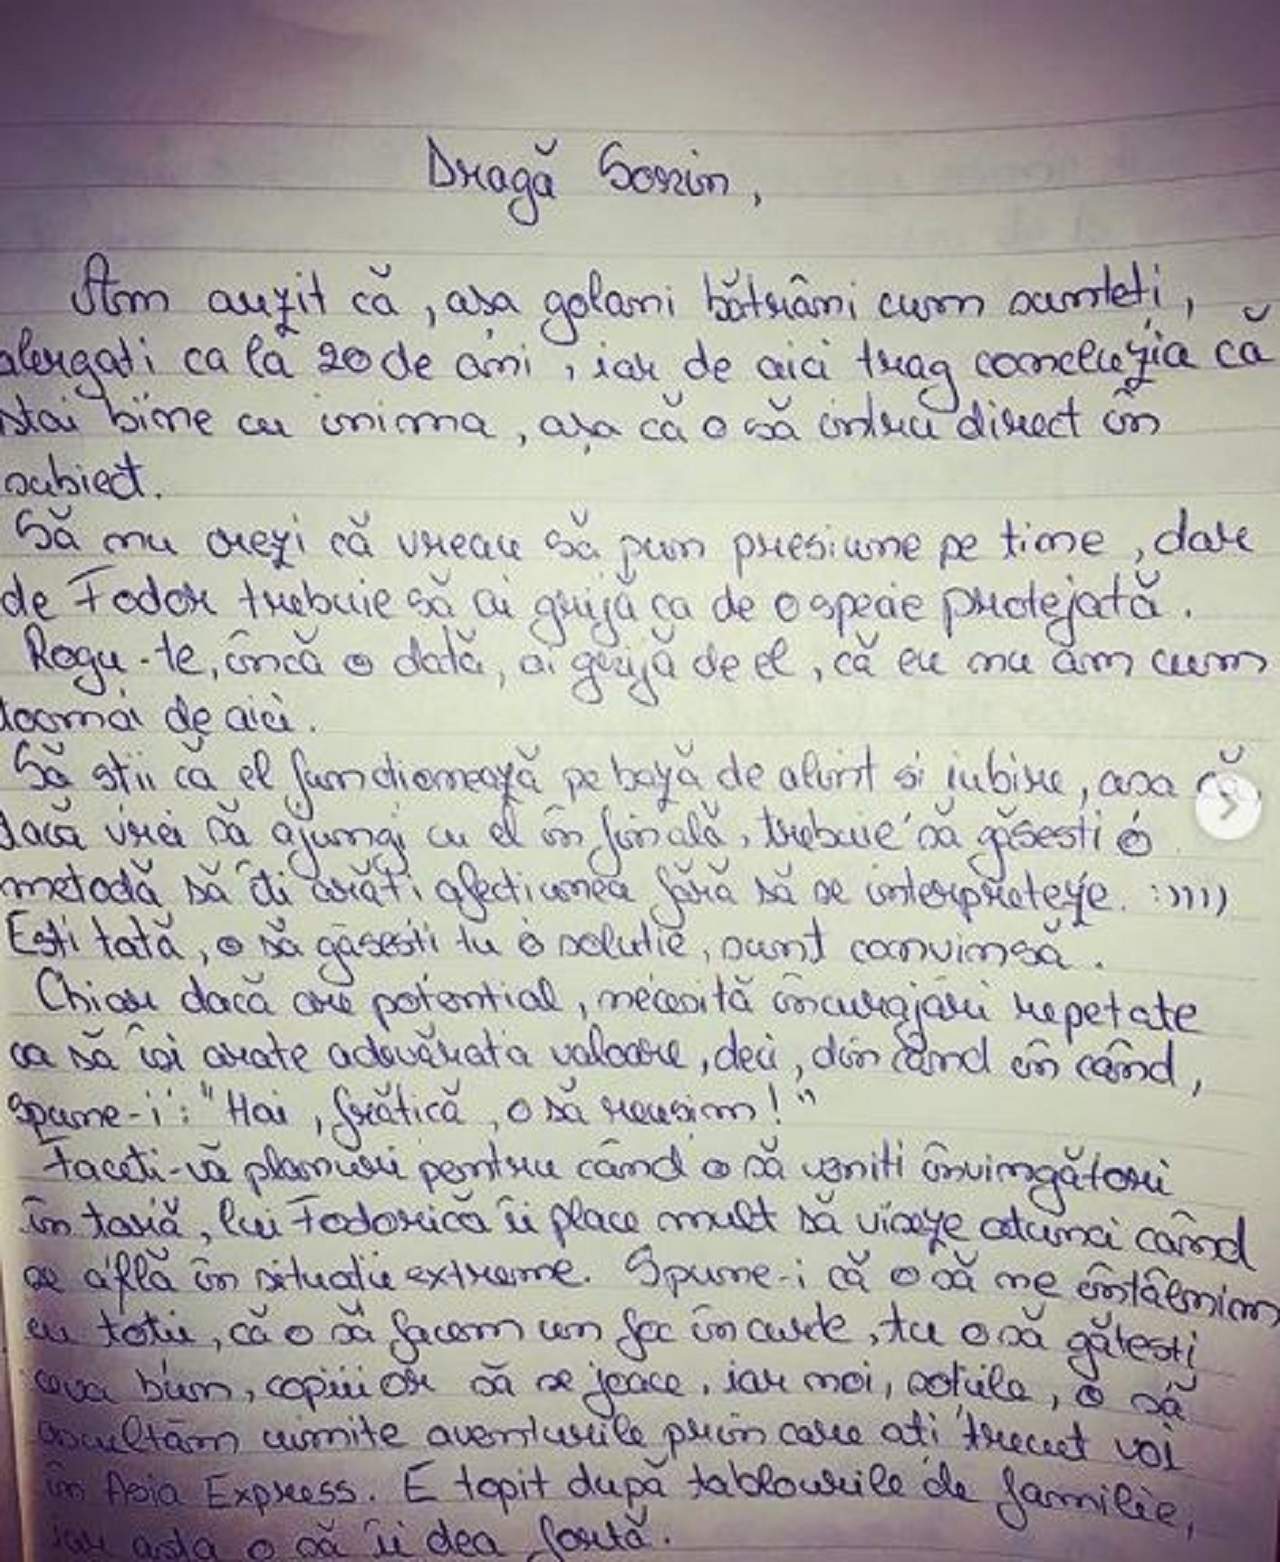 Dragă Sorin,
Am auzit că, așa golani bătrâni cum sunteți,
alergați ca la 20 de ani, iar de aici trag concluzia că
stai bine cu inima, așa că o să intru direct în
subiect.
Să nu crezi că vreau să pun presiune pe tine, dar
de Fodor trebuie să ai grijă ca de o specie protejată.
Rogu-te, încă o dată, ai grijă de el, că eu nu am cum
toomai de aici.
Să știi că el funcționează pe bază de alint și iubire, așa că,
dacă vrei să ajungi cu el în finală, trebuie să găsești o
metodă să îți arăți afecțiunea fără să se interpreteze. :))))
Ești tată, o să găsești tu o soluție, sunt convinsă.
Chiar dacă are potențial, necesită încurajări repetate
ca să își arate adevărata valoare, deci, din când în când,
spune-i: "Hai, frătică, o să reușim!"
Faceți-vă planuri pentru când o să veniți învingători
în țară, lui Fodorică îi place mult să viseze atunci când
se află în situații extreme. Spune-i că o să ne întâlnim
cu toții, că o să facem un foc în curte, tu o să gătești
ceva bun, copiii or să se joace, iar noi, soțiile, o să
ascultăm uimite aventurile prin care ați trecut voi
în Asia Express. E topit după tablourile de familie,
iar asta o să îi dea forță.